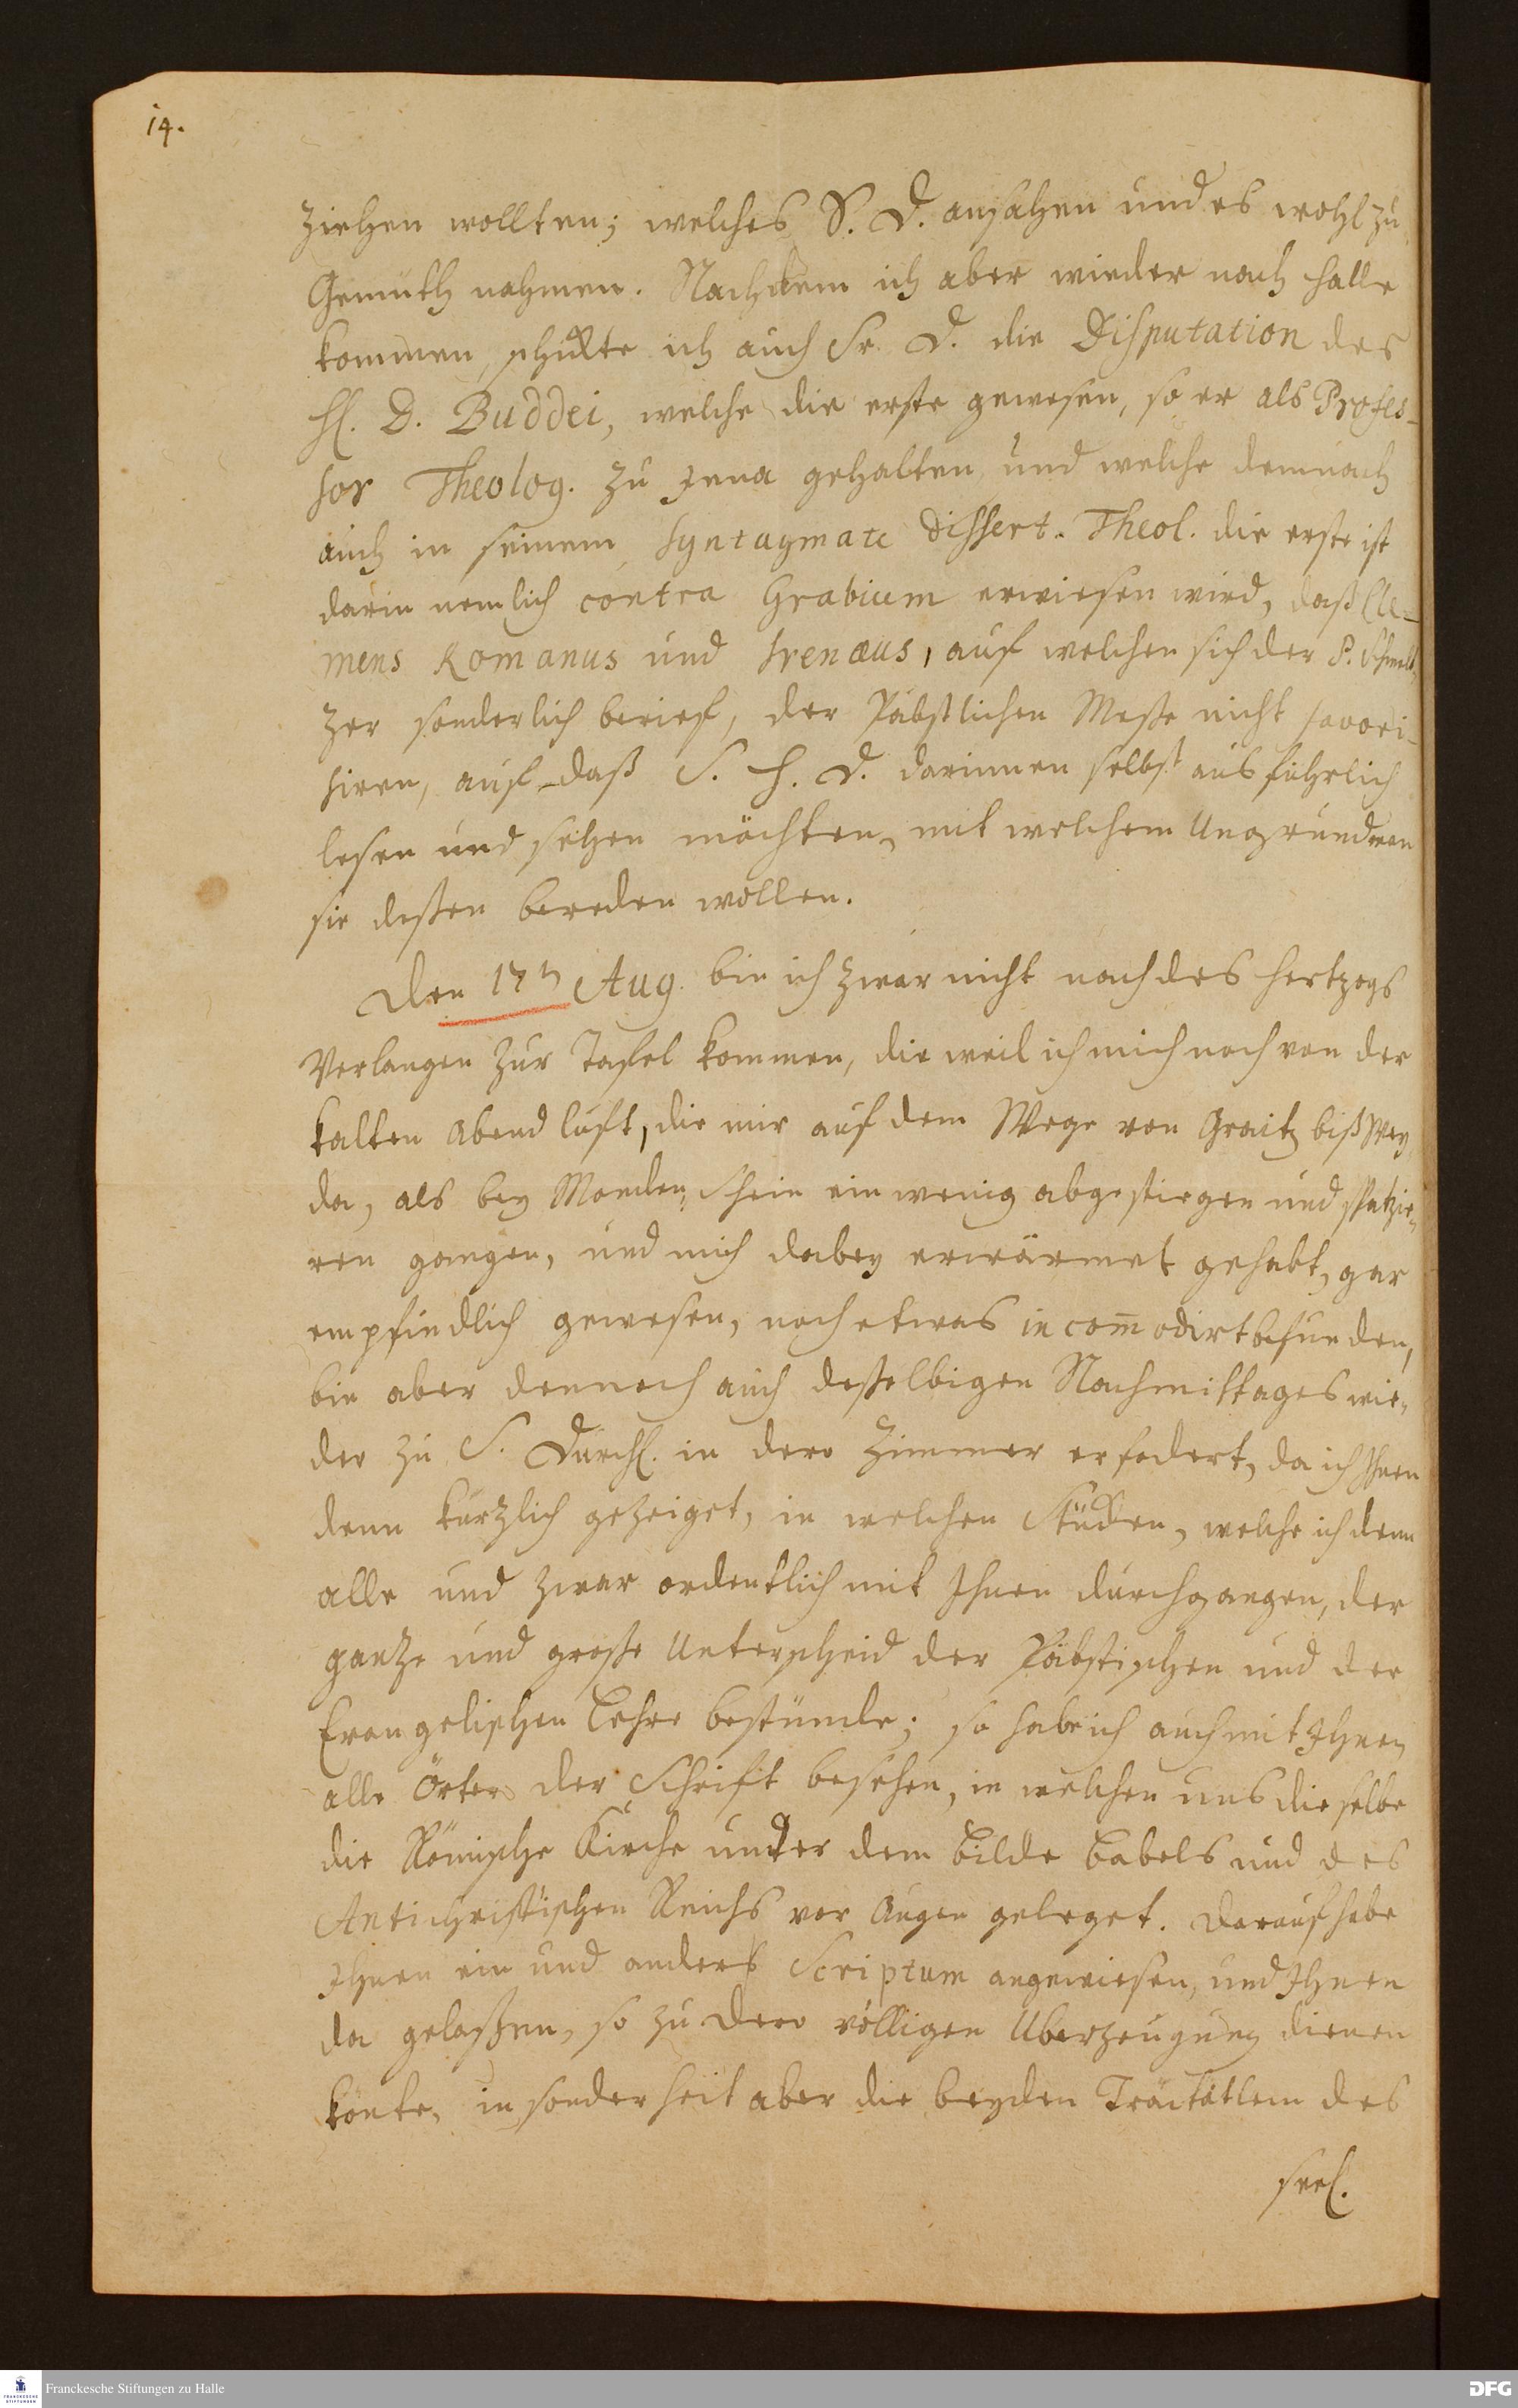 14.
ziehen wollten; welches S. D. ansahen und es wohl zu
Gemüth nahmen. Nachdem ich aber wieder nach Halle
kommen, schickte ich auch Sr. D. die Disputation des
H. D. Buddei, welche die erste gewesen, so er als Profes-
sor Theolog. zu Jena gehalten und welche demnach
auch in seinem Syntagmate Dissert. Theol. die erste ist
darin nemlich contra Grabium erwiesen wird, daß Cle-
mens Romanus und Irenæus, auf welchen sich der P. Schmelt-
zer sonderlich berief, der Päbstlichen Messe nicht favori-
siren, auf daß S. H. D. darinnen selbst ausführlich
lesen und sehen möchten, mit welchem Ungrund man
sie deßen bereden wollen.
Den 17ten Aug. bin ich zwar nicht nach des Hertzogs
Verlangen zur Tafel kommen, die weil ich mich noch von der
kalten Abend luft, die mir auf dem Wege von Graitz biß Wey-
da, als bey Monden-Schein ein wenig abgestiegen und spatzie-
ren gangen, und mich dabey erwärmet gehabt, gar
empfindlich gewesen, noch etwas incom̄odirt befunden,
bin aber dennoch auch deßelbigen Nachmittages wie-
der zu S. Durchl. in dero Zimmer erfodert, da ich Ihnen
denn kürtzlich gezeiget, in welchen Stücken, welche ich denn
alle und zwar ordentlich mit Ihnen durchgangen, der
gantze und große Unterscheid der Päbstischen und der
Evangelischen Lehre bestünde; so habe ich auch mit Ihnen
alle Örter der Schrift besehen, in welchen uns die selbe
die Römische Kirche unter dem Bilde Babels und des
Antichristischen Reichs vor Augen geleget. Darauf habe
Ihnen ein und anders Scriptum angewiesen, und Ihnen
da gelaßen, so zu dero völligen Uberzeugung dienen
könte, in sonderheit aber die beyden Träctätlein des
seel.
Franckesche Stiftungen zu Halle
FRANCKESCHE STIFTUNGEN
DFG